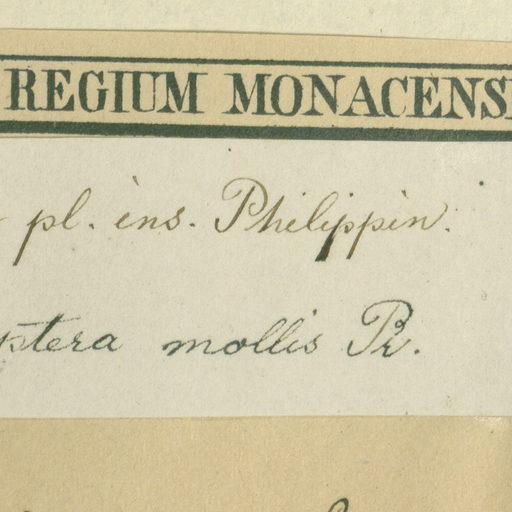 REGIUM MONACENS
pl. ins. Philippin.
ptera mollis Pr.